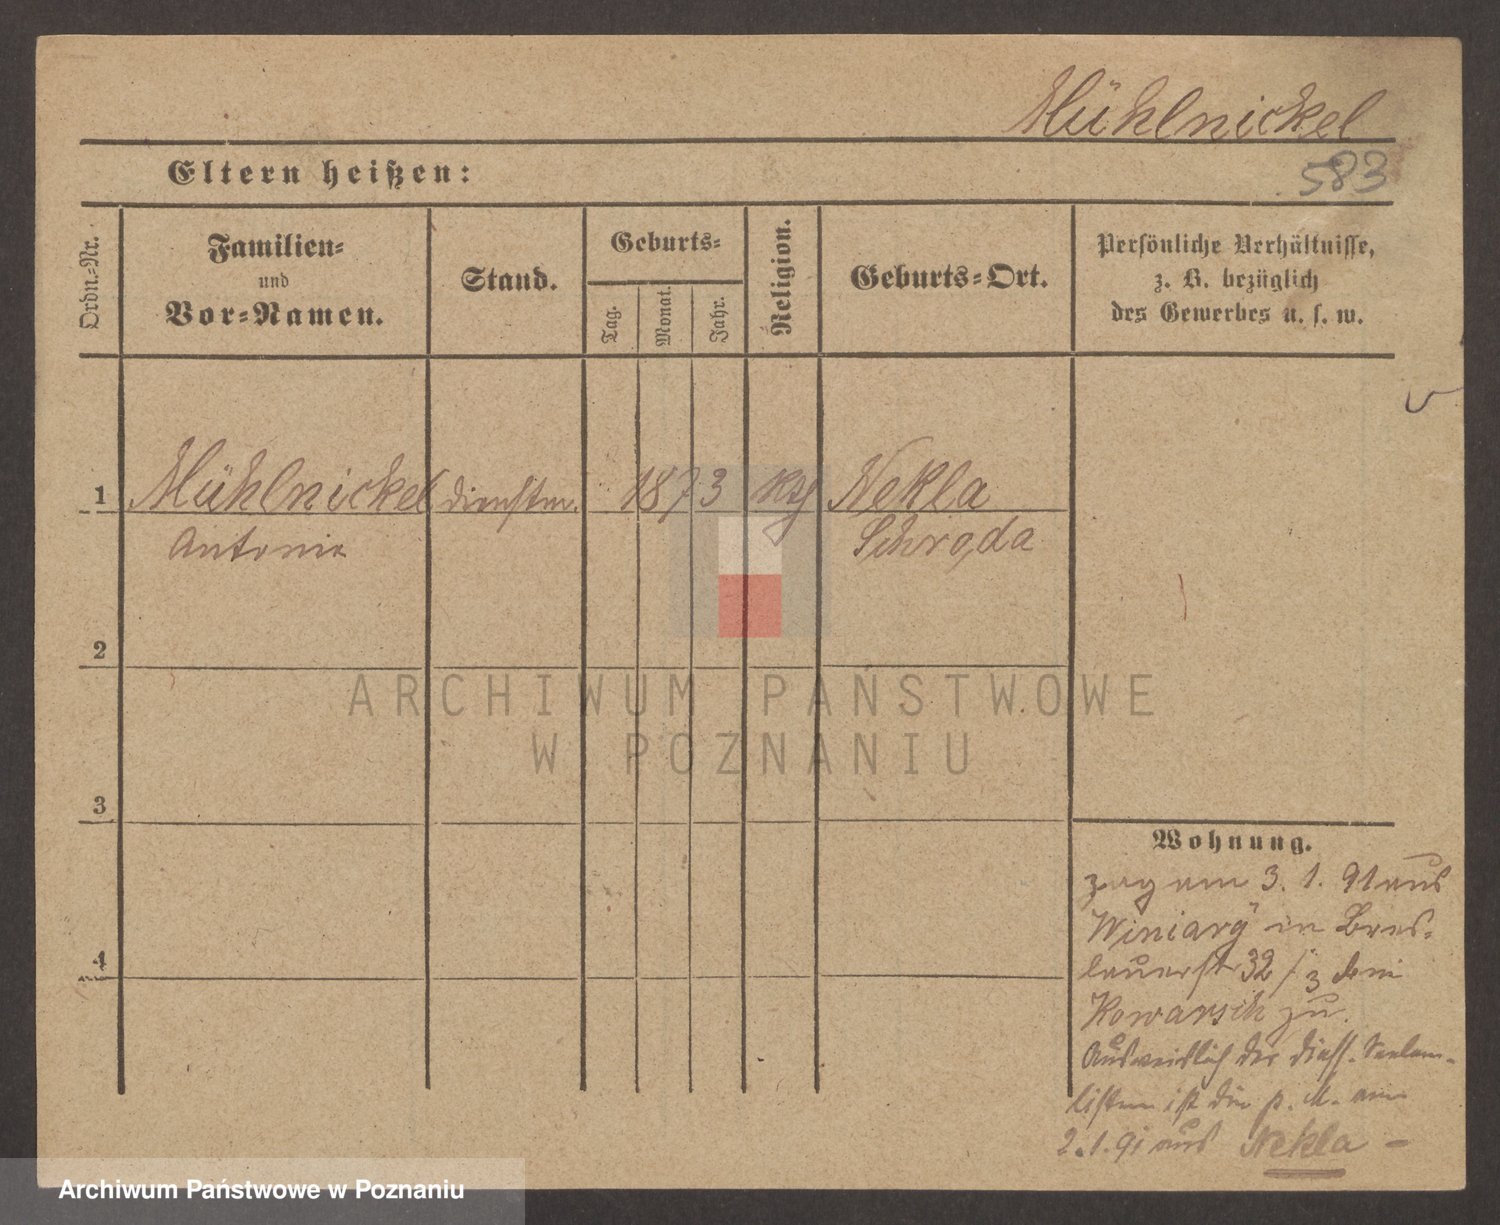 Mühlnickel
Eltern heißen:
583
Ordn.-Nr.
Familien-
und
Vor-Namen.
Stand.
Geburts-
Tag.
Monat.
Jahr.
Religion.
Geburts-Ort.
Persönliche Verhältnisse,
z. B. bezüglich
des Gewerbes u. s. w.
1 Mühlnickel 1873 kth Nekla
Antonie Schroda
2
ARCHIWUM PAŃSTWOWE
W POZNANIU
3
Wohnung.
zog am 3. 1. 91 aus
Winiary in Bres-
4
lauerstr 32 / 3 bei
Kowarsch zu.
Ausweislich der diess. Seelen-
listen ist die p. M. am
2.1.91 aus Nekla -
Archiwum Państwowe w Poznaniu